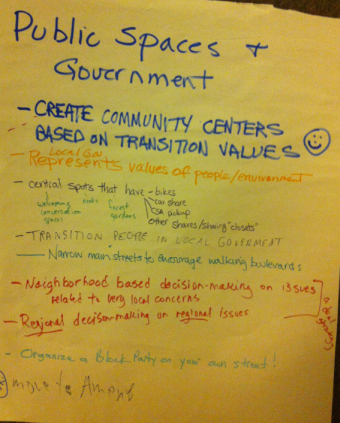 Public Spaces +
Government
- CREATE COMMUNITY CENTERS
BASED ON TRANSITION VALUES
Local Gov
- Represents values of people/environment
- central spots that have - bikes
car share
CSA pickup
other shares/sharing "closets"
welcoming
conversation
spaces
forest
gardens
- TRANSITION PEOPLE IN LOCAL GOVERNMENT
- Narrow main streets to encourage walking boulevards
- Neighborhood based decision-making on issues
related to very local concerns
- Regional decision-making on regional issues
- Organize a Block Party on your own street!
move to